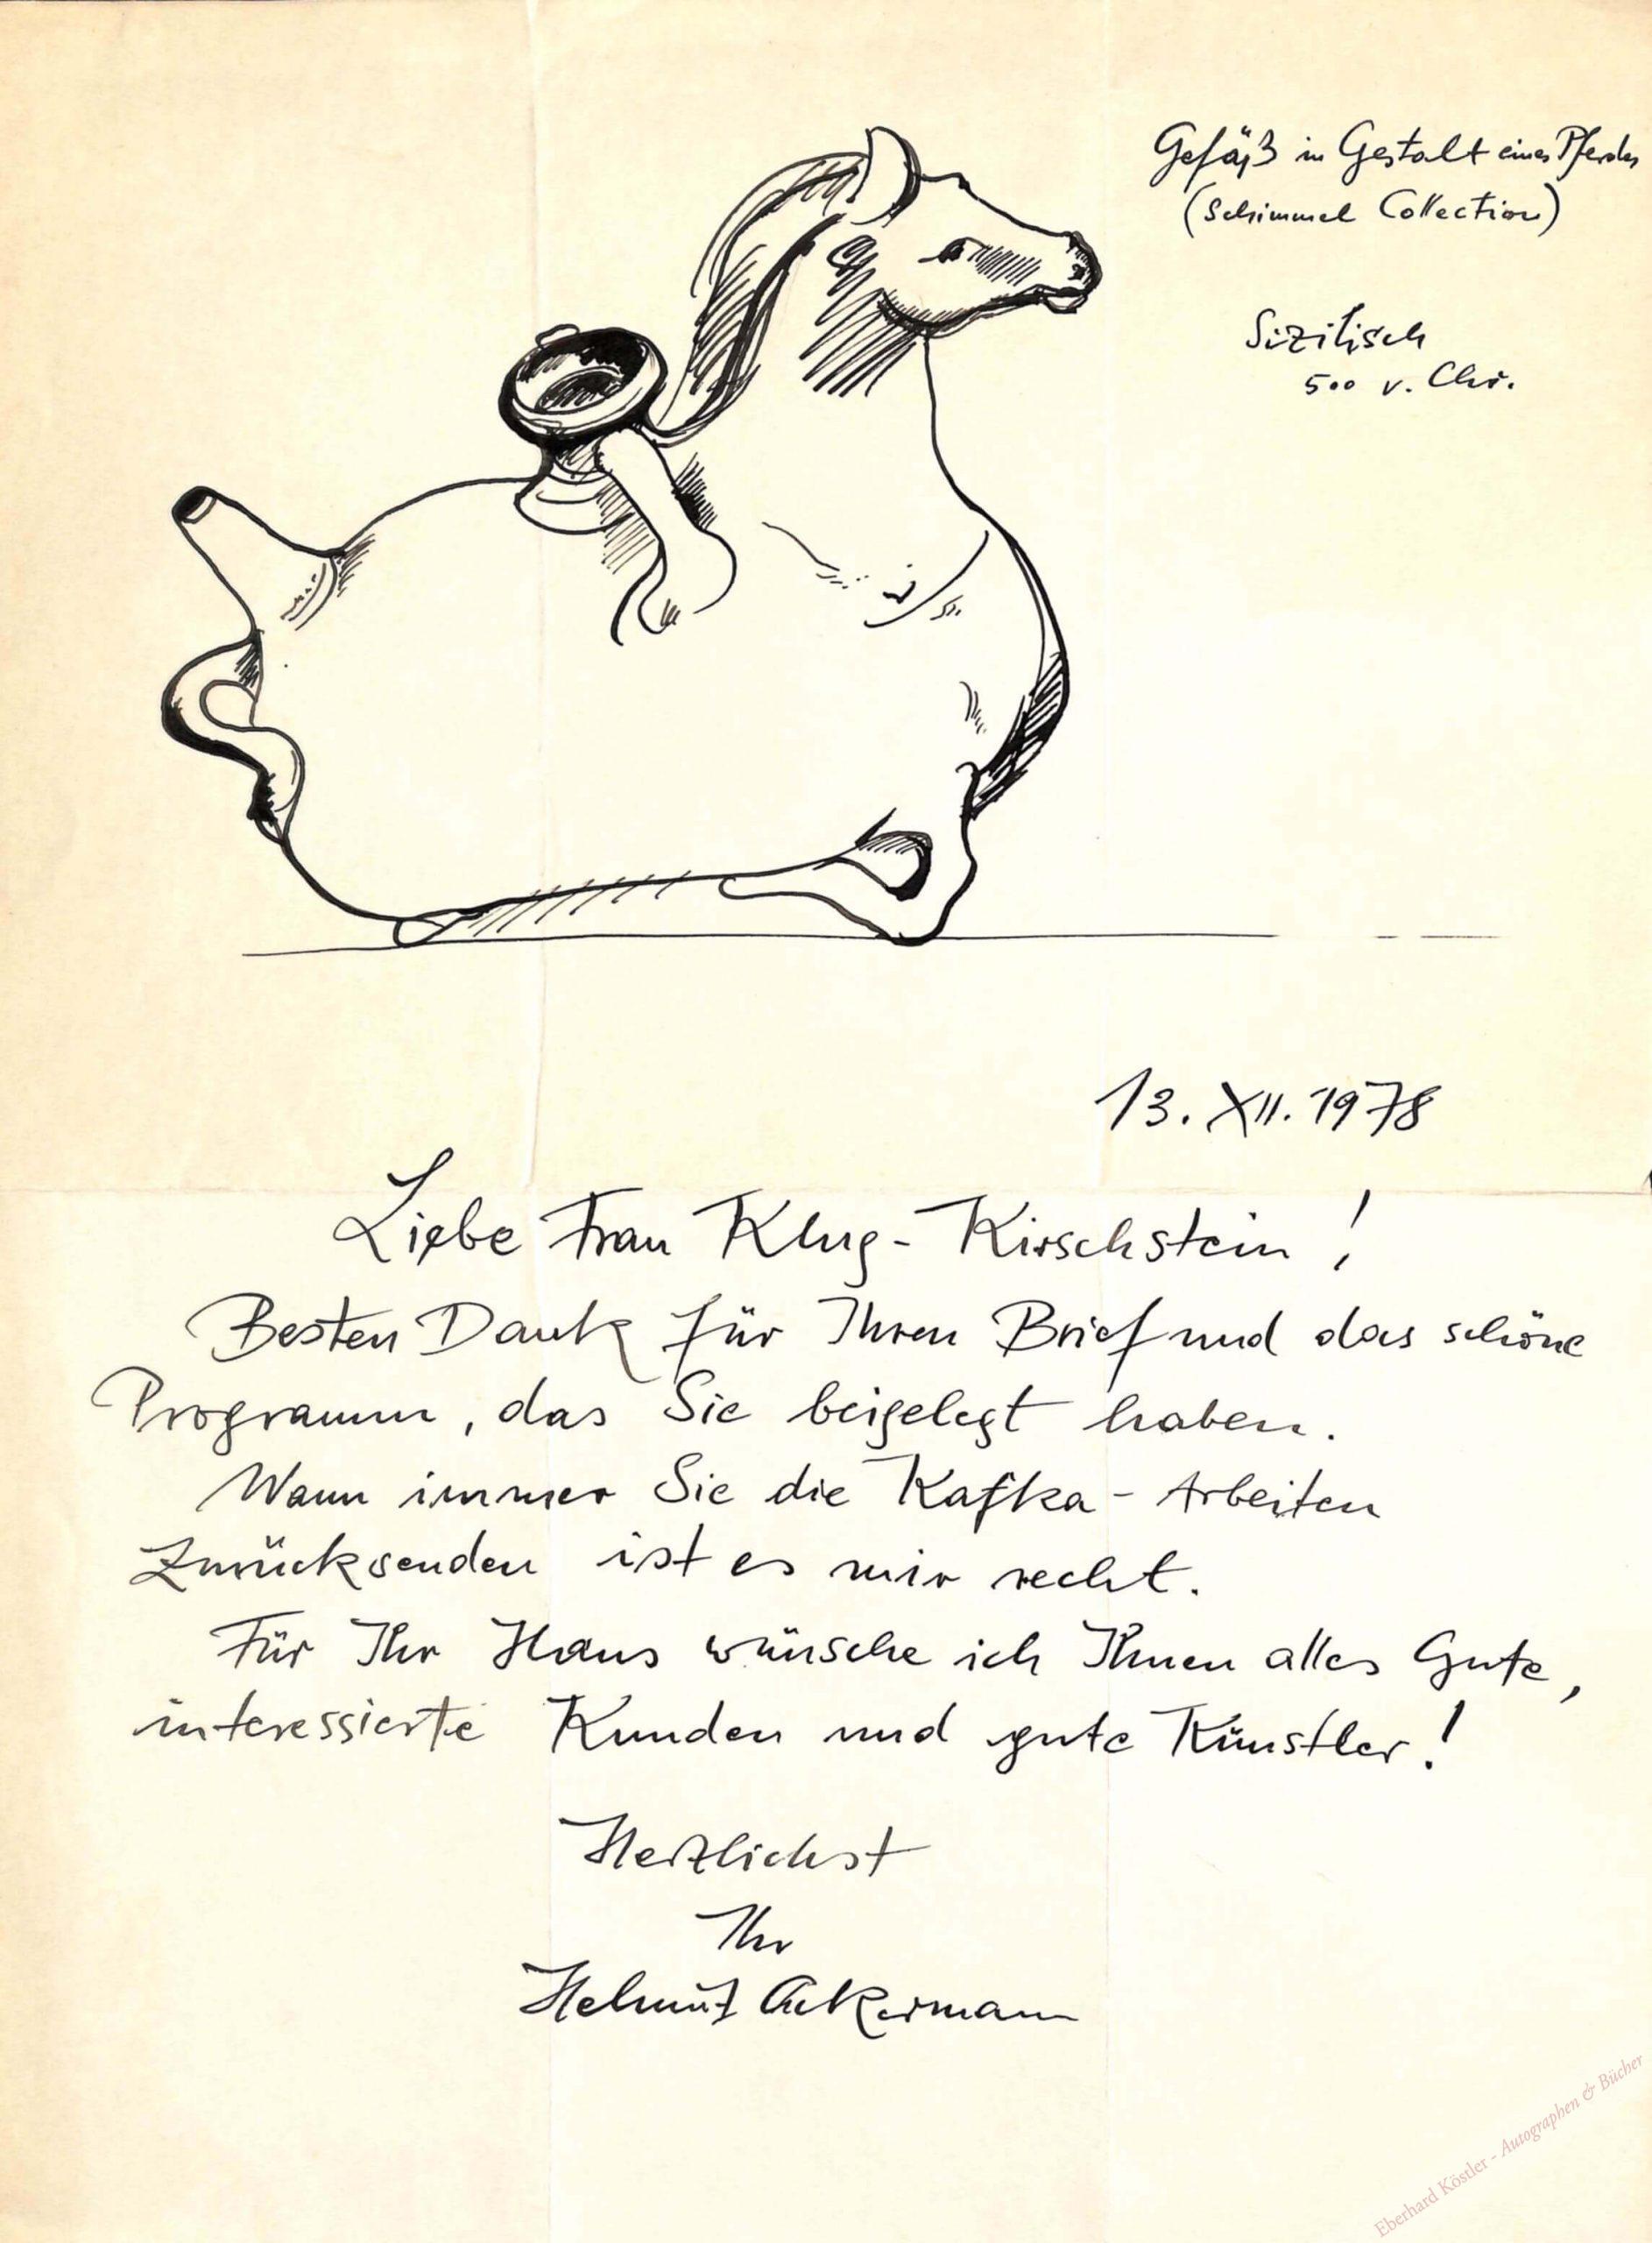 Gefäß in Gestalt eines Pferdes
(Schimmel Collection)
Sizilisch
500 v. Chr.
13. XII. 1978
Liebe Frau Klug-Kirschstein!
Besten Dank für Ihren Brief und das schöne
Programm, das Sie beigelegt haben.
Wann immer Sie die Kafka-Arbeiten
zurücksenden ist es mir recht.
Für Ihr Haus wünsche ich Ihnen alles Gute,
interessierte Kunden und gute Künstler!
Herzlichst
Ihr
Helmut Ackermann
Eberhard Köstler - Autographen & Bücher